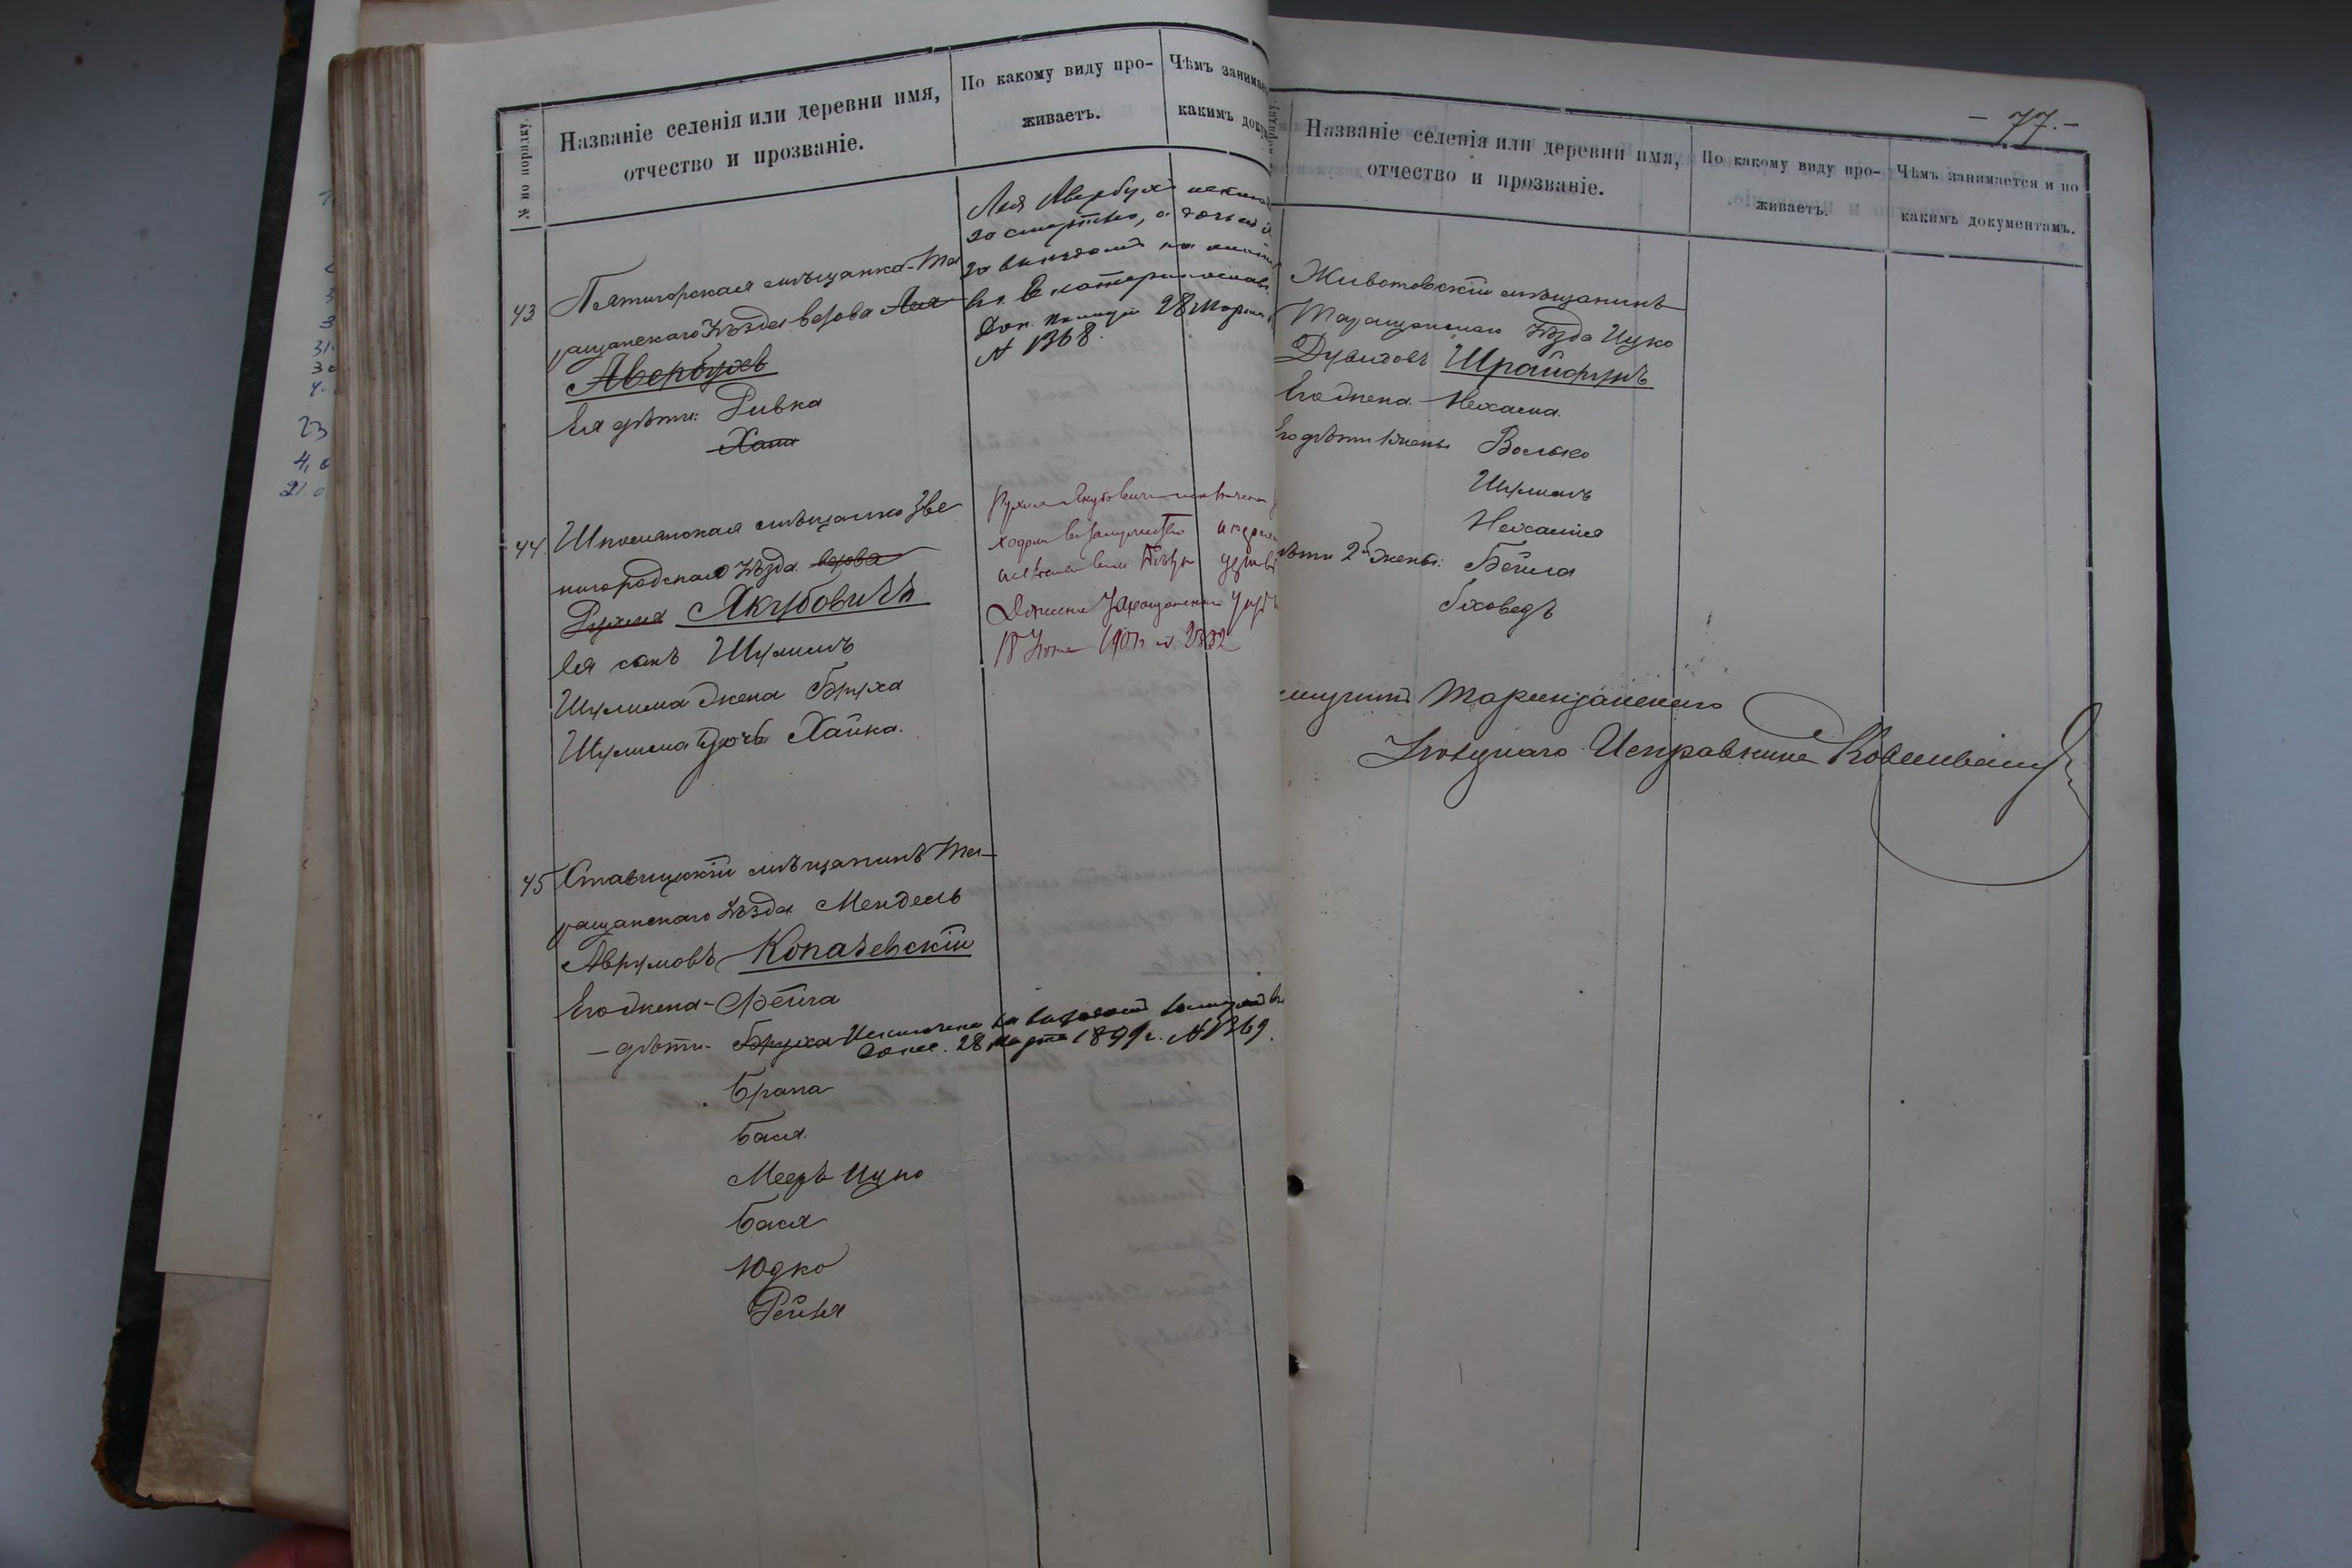 № по порядку.
Названіе селенія или деревни имя,
отчество и прозваніе.
По какому виду про-
живаетъ.
Чѣмъ занимае
какимъ док
43
Пятигорская мѣщанка Та
ращанскаго уѣзда вдова Лея
Авербухъ
Ея дѣти: Ривка
Хана
Лея Авербухъ исключ
за смертью, а дочь ея
за выходом
Екатеринослав.
Дон. Полиціи 28 Марта
№ 1368.
44.
Шполянская мѣщанка Зве
нигородскаго уѣзда вдова
Рухля Якубовичъ
Ея сынъ Шулимъ
Шулима жена Бруха
Шулима дочь Хайка.
Рухля Якубовичъ исключена
замужество
Донесеніе Таращанскаго
18 Іюня 190 № 2332
45
Ставищскій мѣщанинъ Та-
ращанскаго уѣзда Мендель
Аврумовъ Копачевскій
Его жена - Фейга
- дѣти - Бруха Исключена за выходомъ
Донес. 28 Марта 1899 г. № 1369.
Брана
Бася
Мееръ Ицко
Бася
Юдко
Рейзя
- 77. -
Названіе селенія или деревни имя,
отчество и прозваніе.
По какому виду про-
живаетъ.
Чѣмъ занимается и по
какимъ документамъ.
Животовскій мѣщанинъ
Таращанскаго уѣзда Ицко
Дувидовъ Шрайфунъ
Его жена Нехама
Его дѣти 1 жены Волько
Шулимъ
Нехамія
дѣти 2й жены: Бейла
Іховедъ
Таращанскаго
Уѣзднаго Исправника